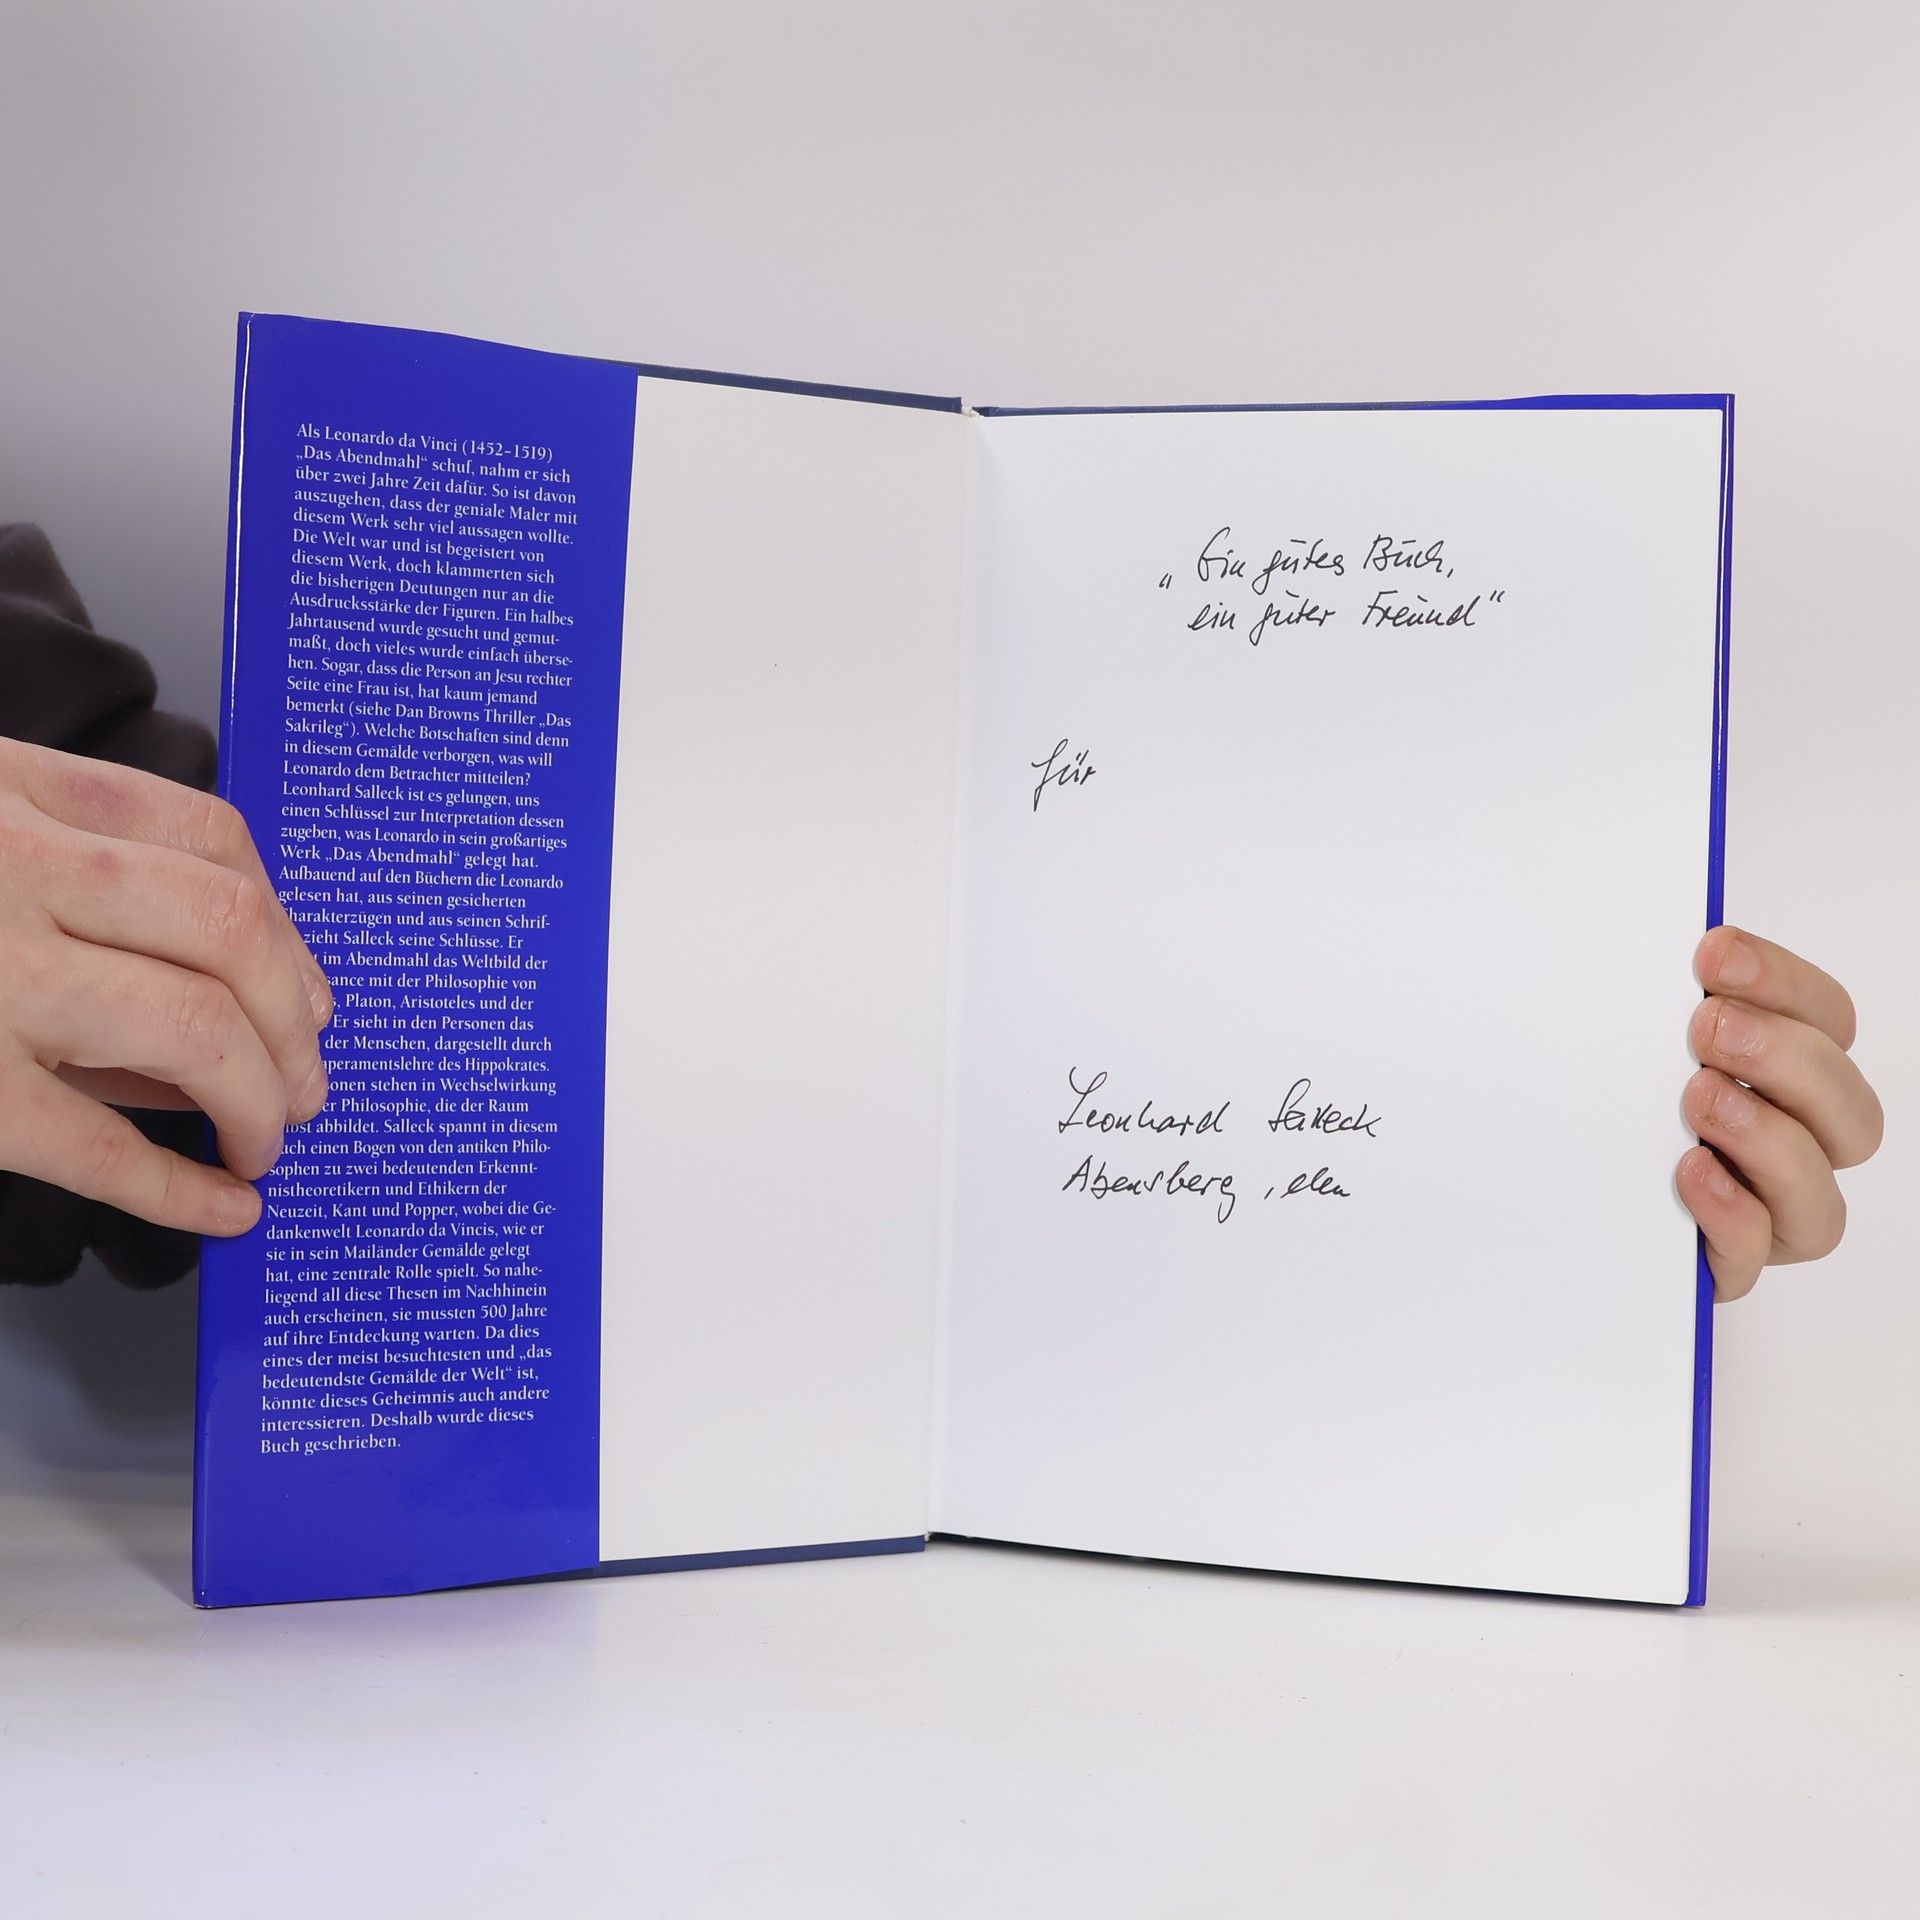 Als Leonardo da Vinci (1452–1519)
„Das Abendmahl“ schuf, nahm er sich
über zwei Jahre Zeit dafür. So ist davon
auszugehen, dass der geniale Maler mit
diesem Werk sehr viel aussagen wollte.
Die Welt war und ist begeistert von
diesem Werk, doch klammerten sich
die bisherigen Deutungen nur an die
Ausdrucksstärke der Figuren. Ein halbes
Jahrtausend wurde gesucht und gemut-
maßt, doch vieles wurde einfach überse-
hen. Sogar, dass die Person an Jesu rechter
Seite eine Frau ist, hat kaum jemand
bemerkt (siehe Dan Browns Thriller „Das
Sakrileg“). Welche Botschaften sind denn
in diesem Gemälde verborgen, was will
Leonardo dem Betrachter mitteilen?
Leonhard Salleck ist es gelungen, uns
einen Schlüssel zur Interpretation dessen
zugeben, was Leonardo in sein großartiges
Werk „Das Abendmahl“ gelegt hat.
Aufbauend auf den Büchern die Leonardo
gelesen hat, aus seinen gesicherten
harakterzügen und aus seinen Schrif-
zieht Salleck seine Schlüsse. Er
im Abendmahl das Weltbild der
sance mit der Philosophie von
Platon, Aristoteles und der
Er sieht in den Personen das
der Menschen, dargestellt durch
peramentslehre des Hippokrates.
sonen stehen in Wechselwirkung
er Philosophie, die der Raum
bst abbildet. Salleck spannt in diesem
uch einen Bogen von den antiken Philo-
sophen zu zwei bedeutenden Erkennt-
nistheoretikern und Ethikern der
Neuzeit, Kant und Popper, wobei die Ge-
dankenwelt Leonardo da Vincis, wie er
sie in sein Mailänder Gemälde gelegt
hat, eine zentrale Rolle spielt. So nahe-
liegend all diese Thesen im Nachhinein
auch erscheinen, sie mussten 500 Jahre
auf ihre Entdeckung warten. Da dies
eines der meist besuchtesten und „das
bedeutendste Gemälde der Welt“ ist,
könnte dieses Geheimnis auch andere
interessieren. Deshalb wurde dieses
Buch geschrieben.
„Ein gutes Buch,
ein guter Freund“
für
Leonhard Salleck
Abensberg, den